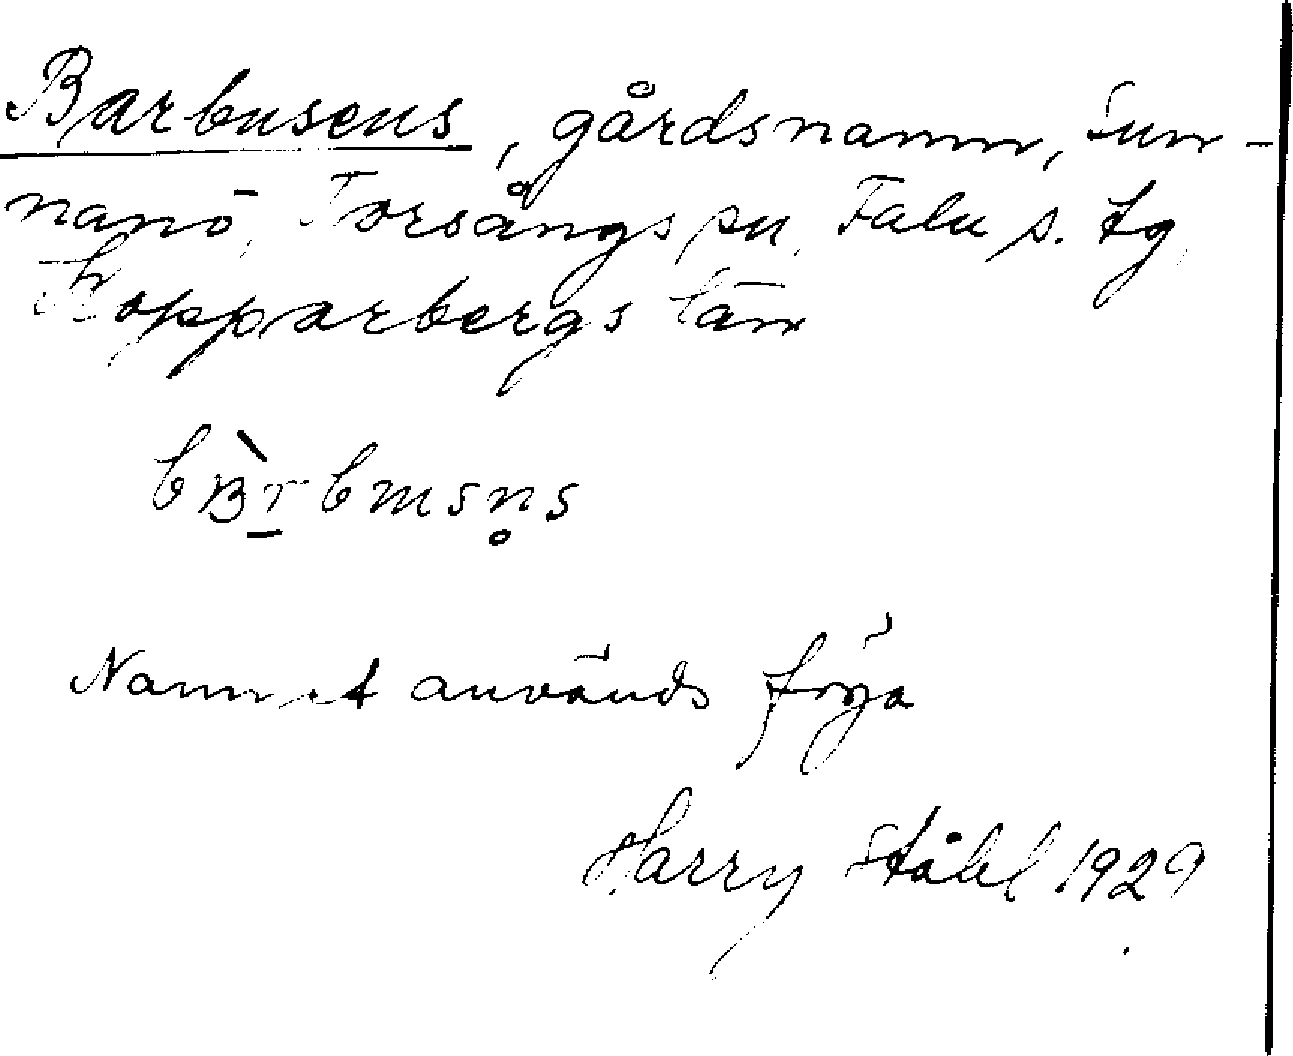 Barbusens, gårdsnamn, Sun-
nanö, Torsångs sn, Falu s. tg,
Kopparbergs län
Namnet används
Harry Ståhl 1929